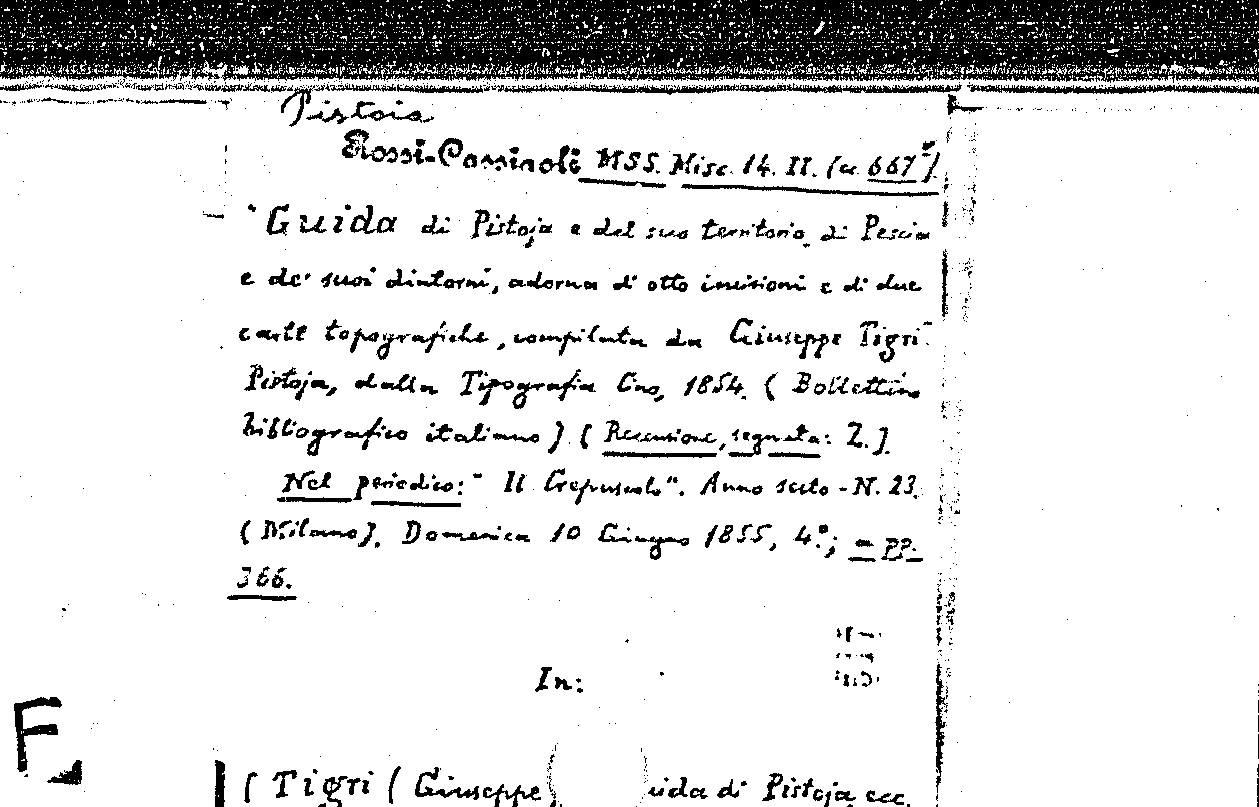 Pistoia
Rossi-Cassigoli MSS. Misc. 14. II. (a 667º).
"Guida di Pistoja e del suo territorio, di Pescia
e de' suoi dintorni, adorna di otto incisioni e di due
carte topografiche, compilata da Giuseppe Tigri"
Pistoja, dalla Tipografia Cino, 1854. (Bollettino
bibliografico italiano) (Recensione, segnata: Z.).
Nel periodico: "Il Crepuscolo". Anno sesto - N. 23.
(Milano), Domenica 10 Giugno 1855, 4.º; a pp.
366.
In:
F
( Tigri ( Giuseppe uida di Pistoja, ecc.